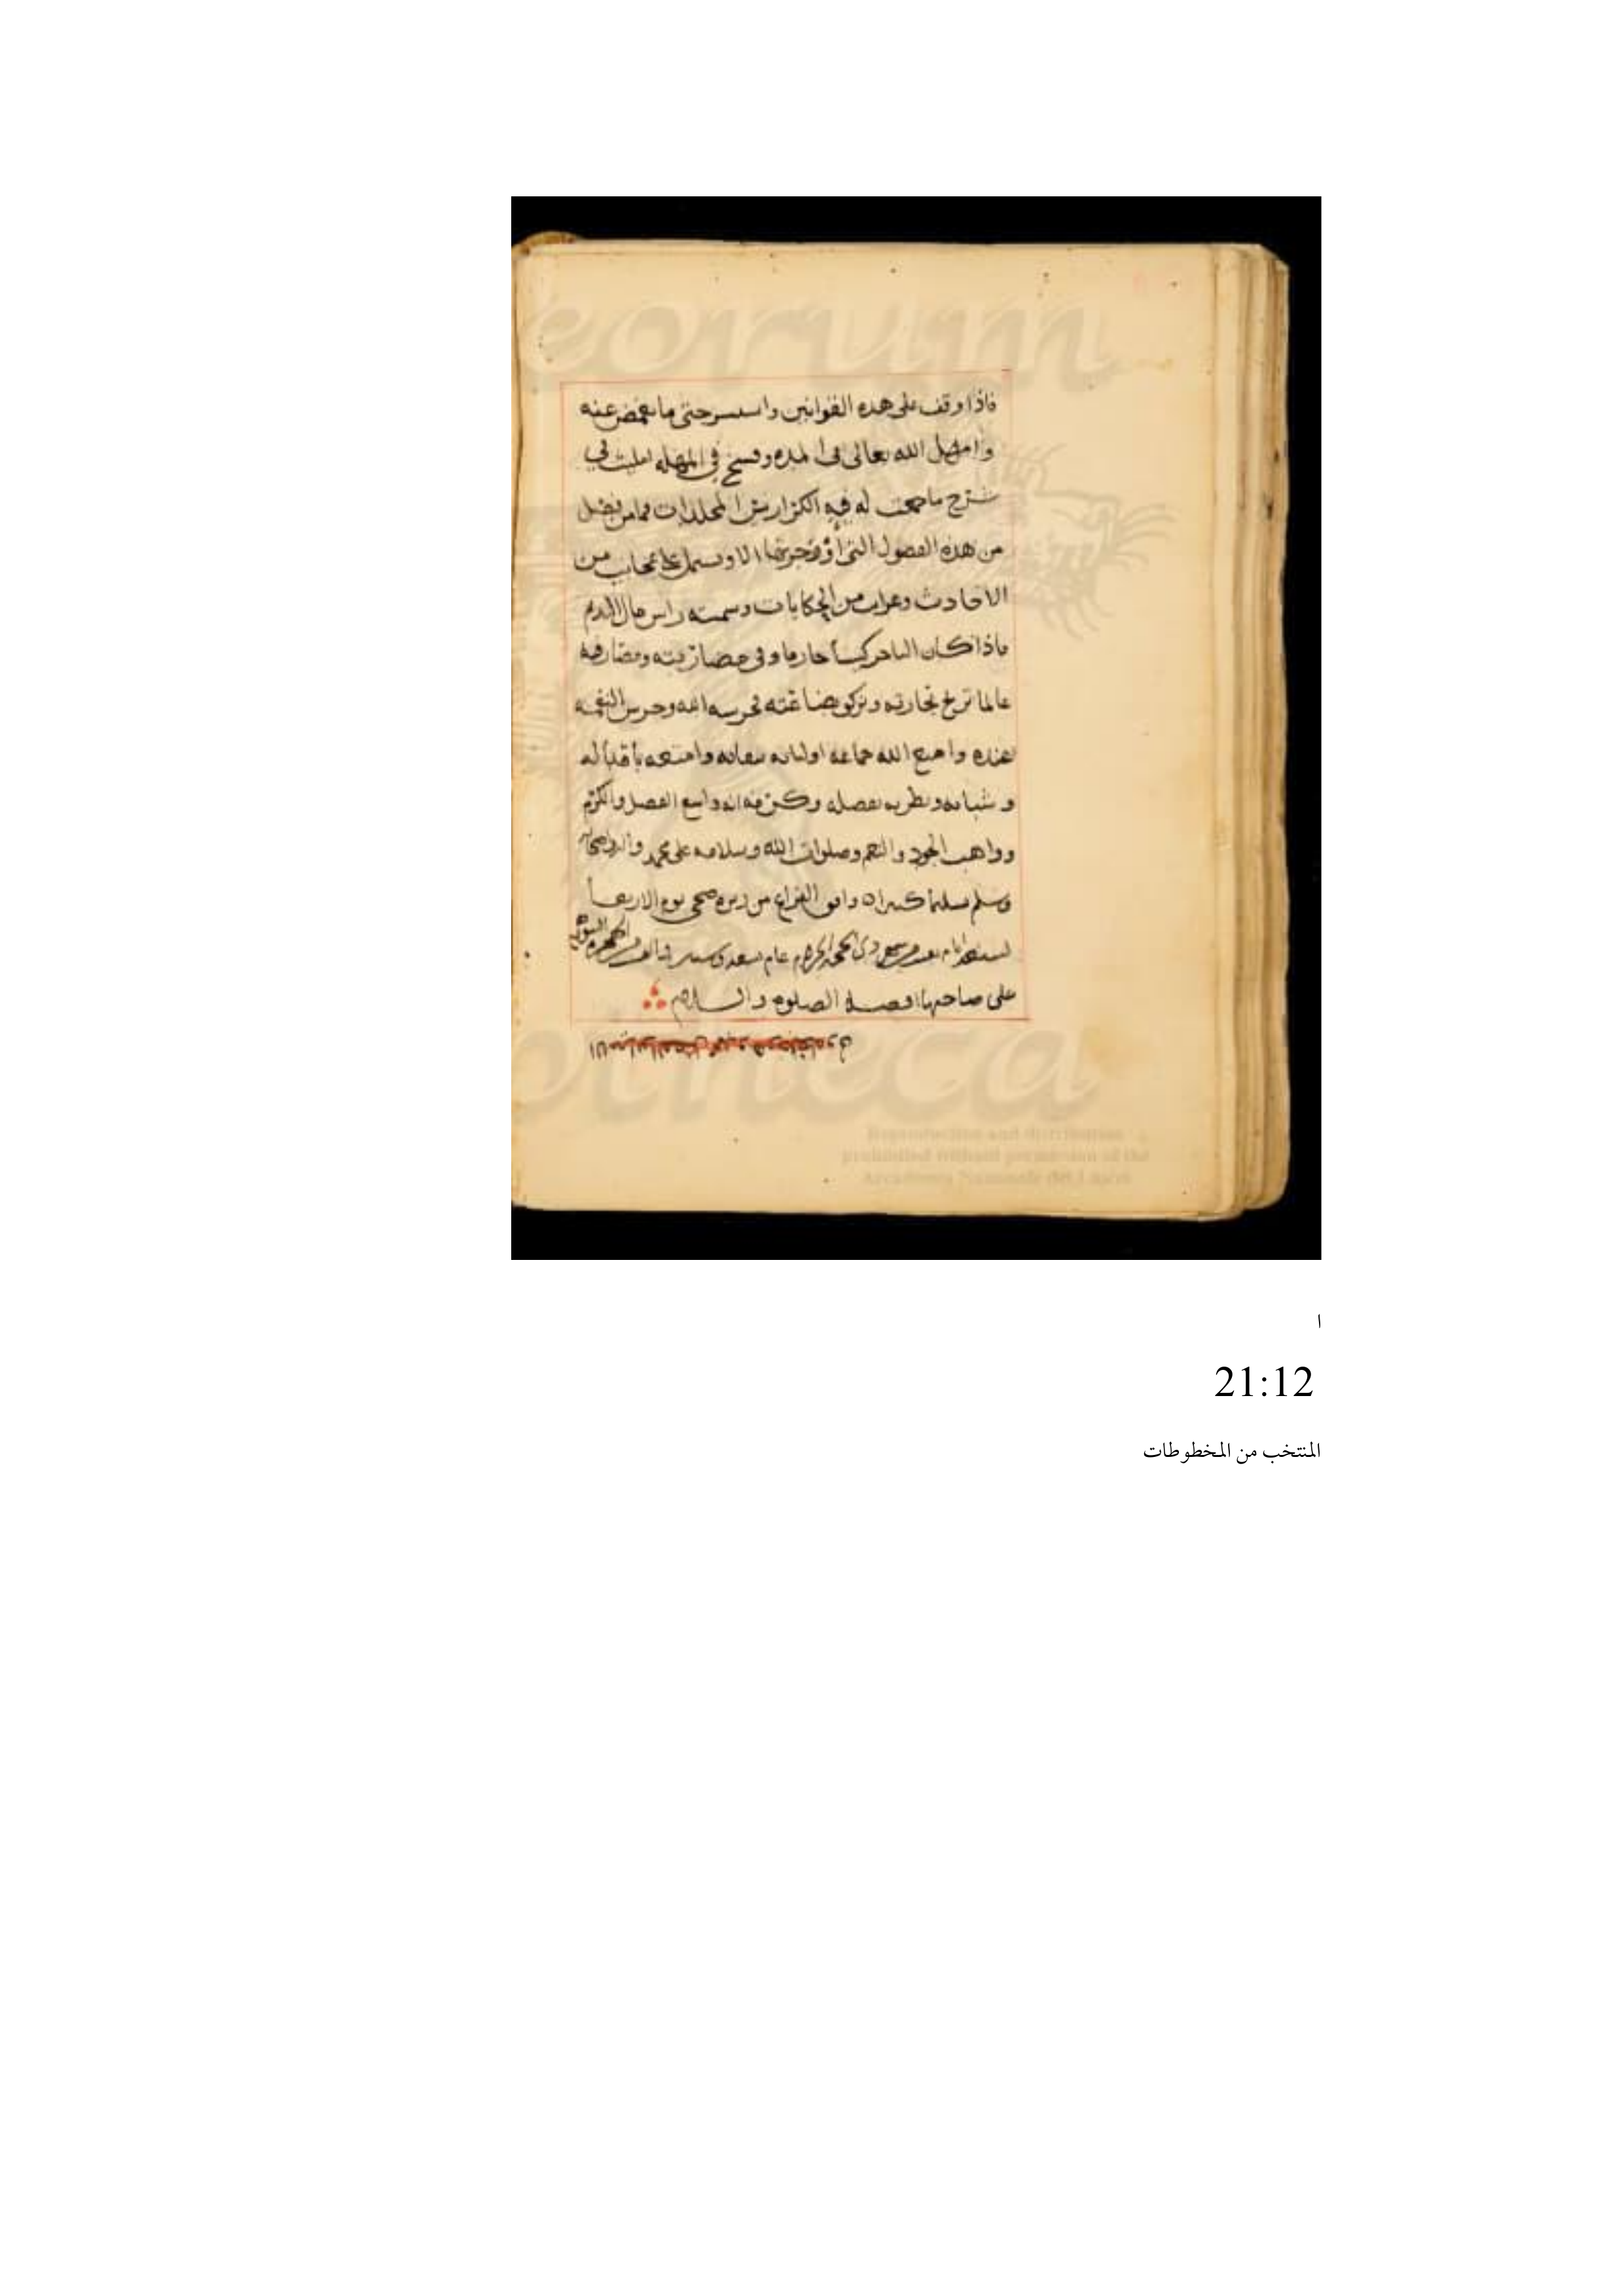 فاذا وقف على هذه القوانين واستسرحتى ما يغمض عنه
وامهل الله تعالى فى المده وفسح فى المهله امليت فى
شرح ما جمعت له فيه الكراريس المجلدات فما من فصل
من هذه الفصول التى اوجزتها الا ويشتمل على عجايب من
الاحاديث وغرايب من الحكايات وسميته راس مال النديم
فاذا كان التاجر كيسا حازما وفى
عالما تربح تجارته وتزكو بضاعته فحرسه الله وحرس النعمه
عنده وامتع الله جماعه اوليائه ببقائه وامتعه باقباله
وشبابه بفضله وكرمه انه واسع الفضل والكرم
وواهب الجود والنعم وصلوات الله وسلامه على محمد واله وصحبه
وسلم تسليما كثيرا وافق الفراغ من زبره ضحى يوم الاربعا
ذى الحجه الحرام عام
على صاحبها افضل الصلوه والسلام
Reproduction and distribution
prohibited without permission of the
Accademia Nazionale dei Lincei
ا
21:12
المنتخب من المخطوطات